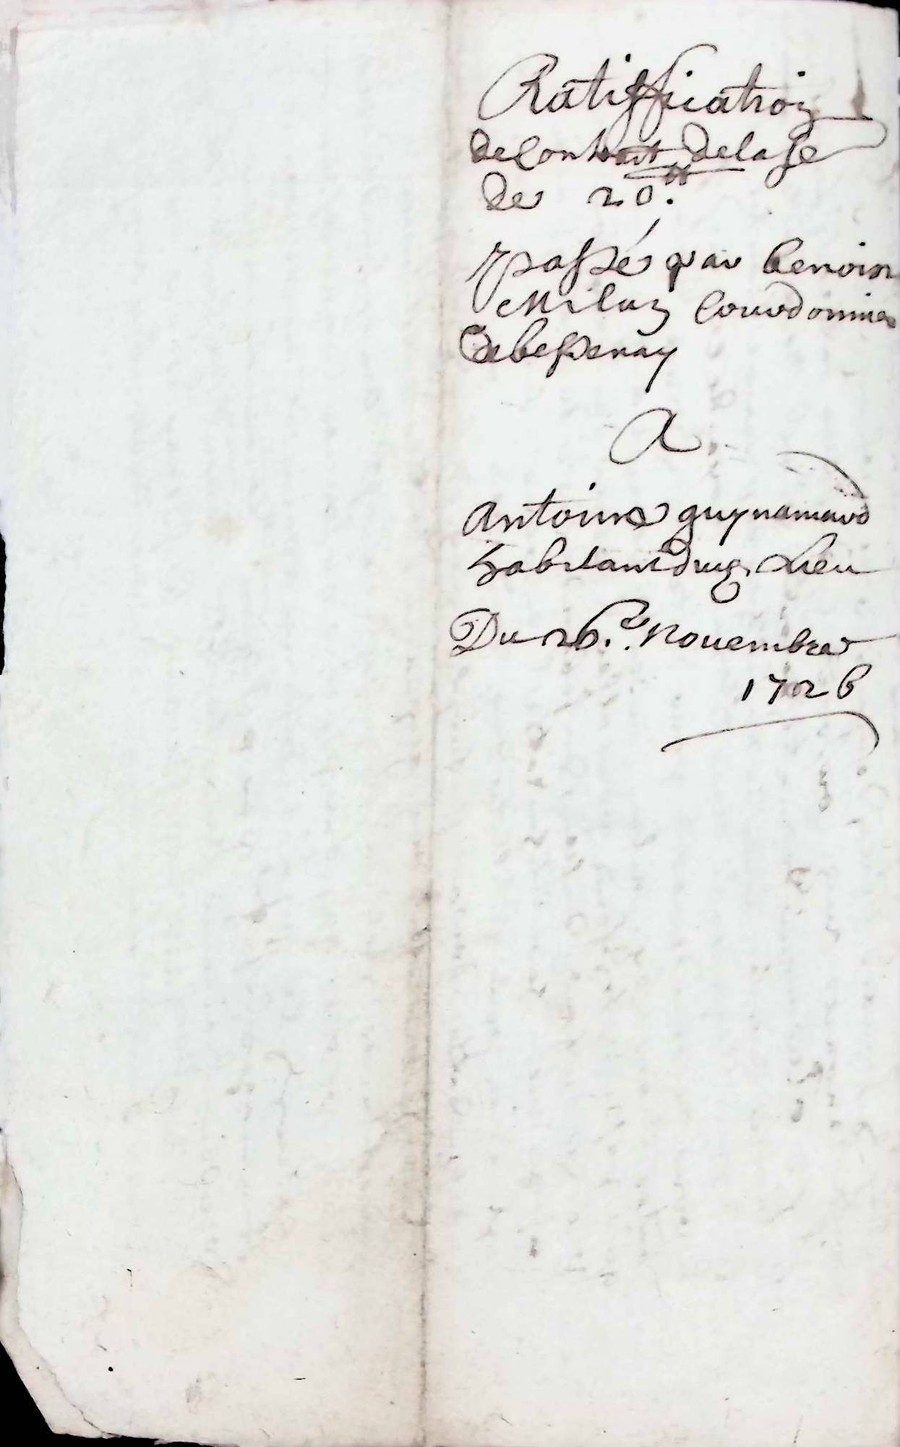 Ratiffication
de Contrait de la se
de 20 #.
passé par benoist
Milan Courdonnier
de bessenay
A
Antoine guynamard
habitant dud. Lieu
Du 26.e Nouembre
1726